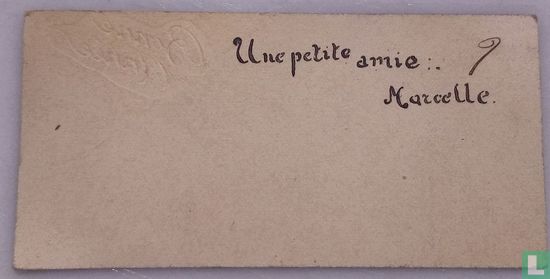 Une petite amie:.
Marcelle.